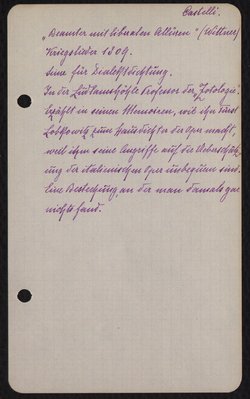 Castelli.
„Beamter mit liberalen Allüren" (Wittner)
Kriegslieder 1809.
Sinn für Dialektdichtung.
In der Ludlamshöhle Professor der Zotologie.
Erzählt in seinen Memoiren, wie ihn Fürst
Lobkowitz zum Hausdichter der Oper macht,
weil ihm seine Angriffe auf die Ueberschätz-
ung der italienischen Oper unbequem sind.
Eine Bestechung, an der man damals gar
nichts fand.